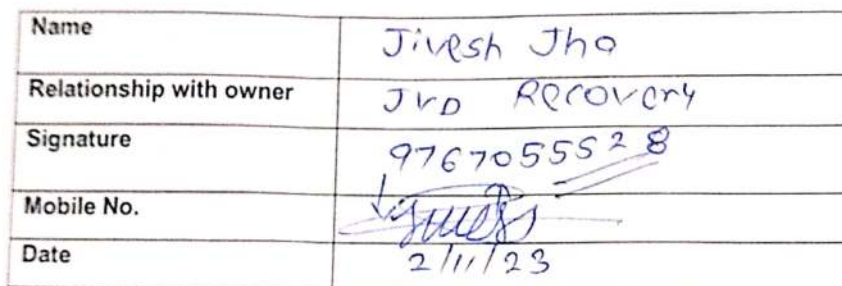 Name Jivesh Jha
Relationship with owner JVD Recovery
Signature 9767055528
Mobile No.
Date 2/11/23